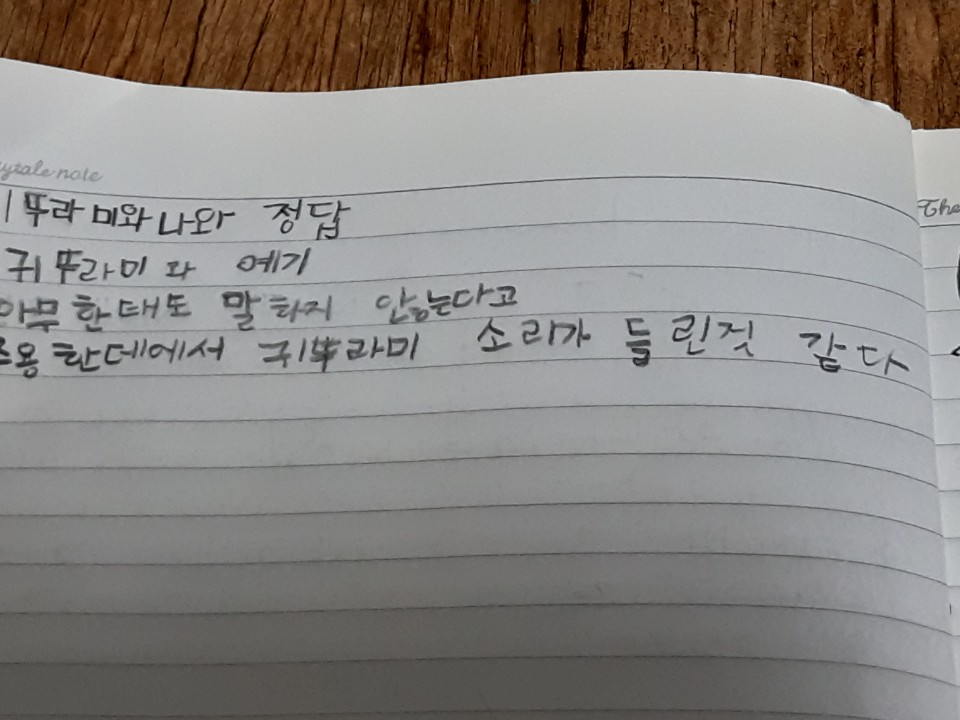 ytale note
뚜라미와나와 정답
귀뚜라미 과 예기
아무한대도 말하지 안는다고
조용한데에서 귀뚜라미 소리가 들린것 같다
The